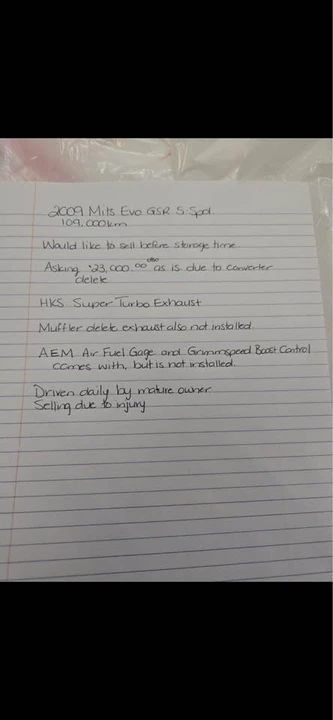 2009 Mits Evo GSR 5 Spd.
109,000km
Would like to sell before storage time.
Asking $23,000.00 obo as is due to converter
delete
HKS Super Turbo Exhaust
Muffler delete exhaust also not installed.
AEM Air Fuel Gage and Grimmspeed Boost Control
comes with, but is not installed.
Driven daily by mature owner
Selling due to injury